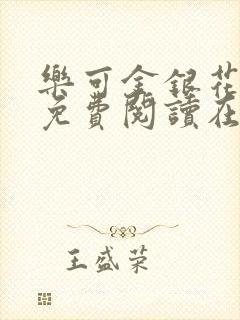 樂可金銀花
免費閱讀在
王盛荣